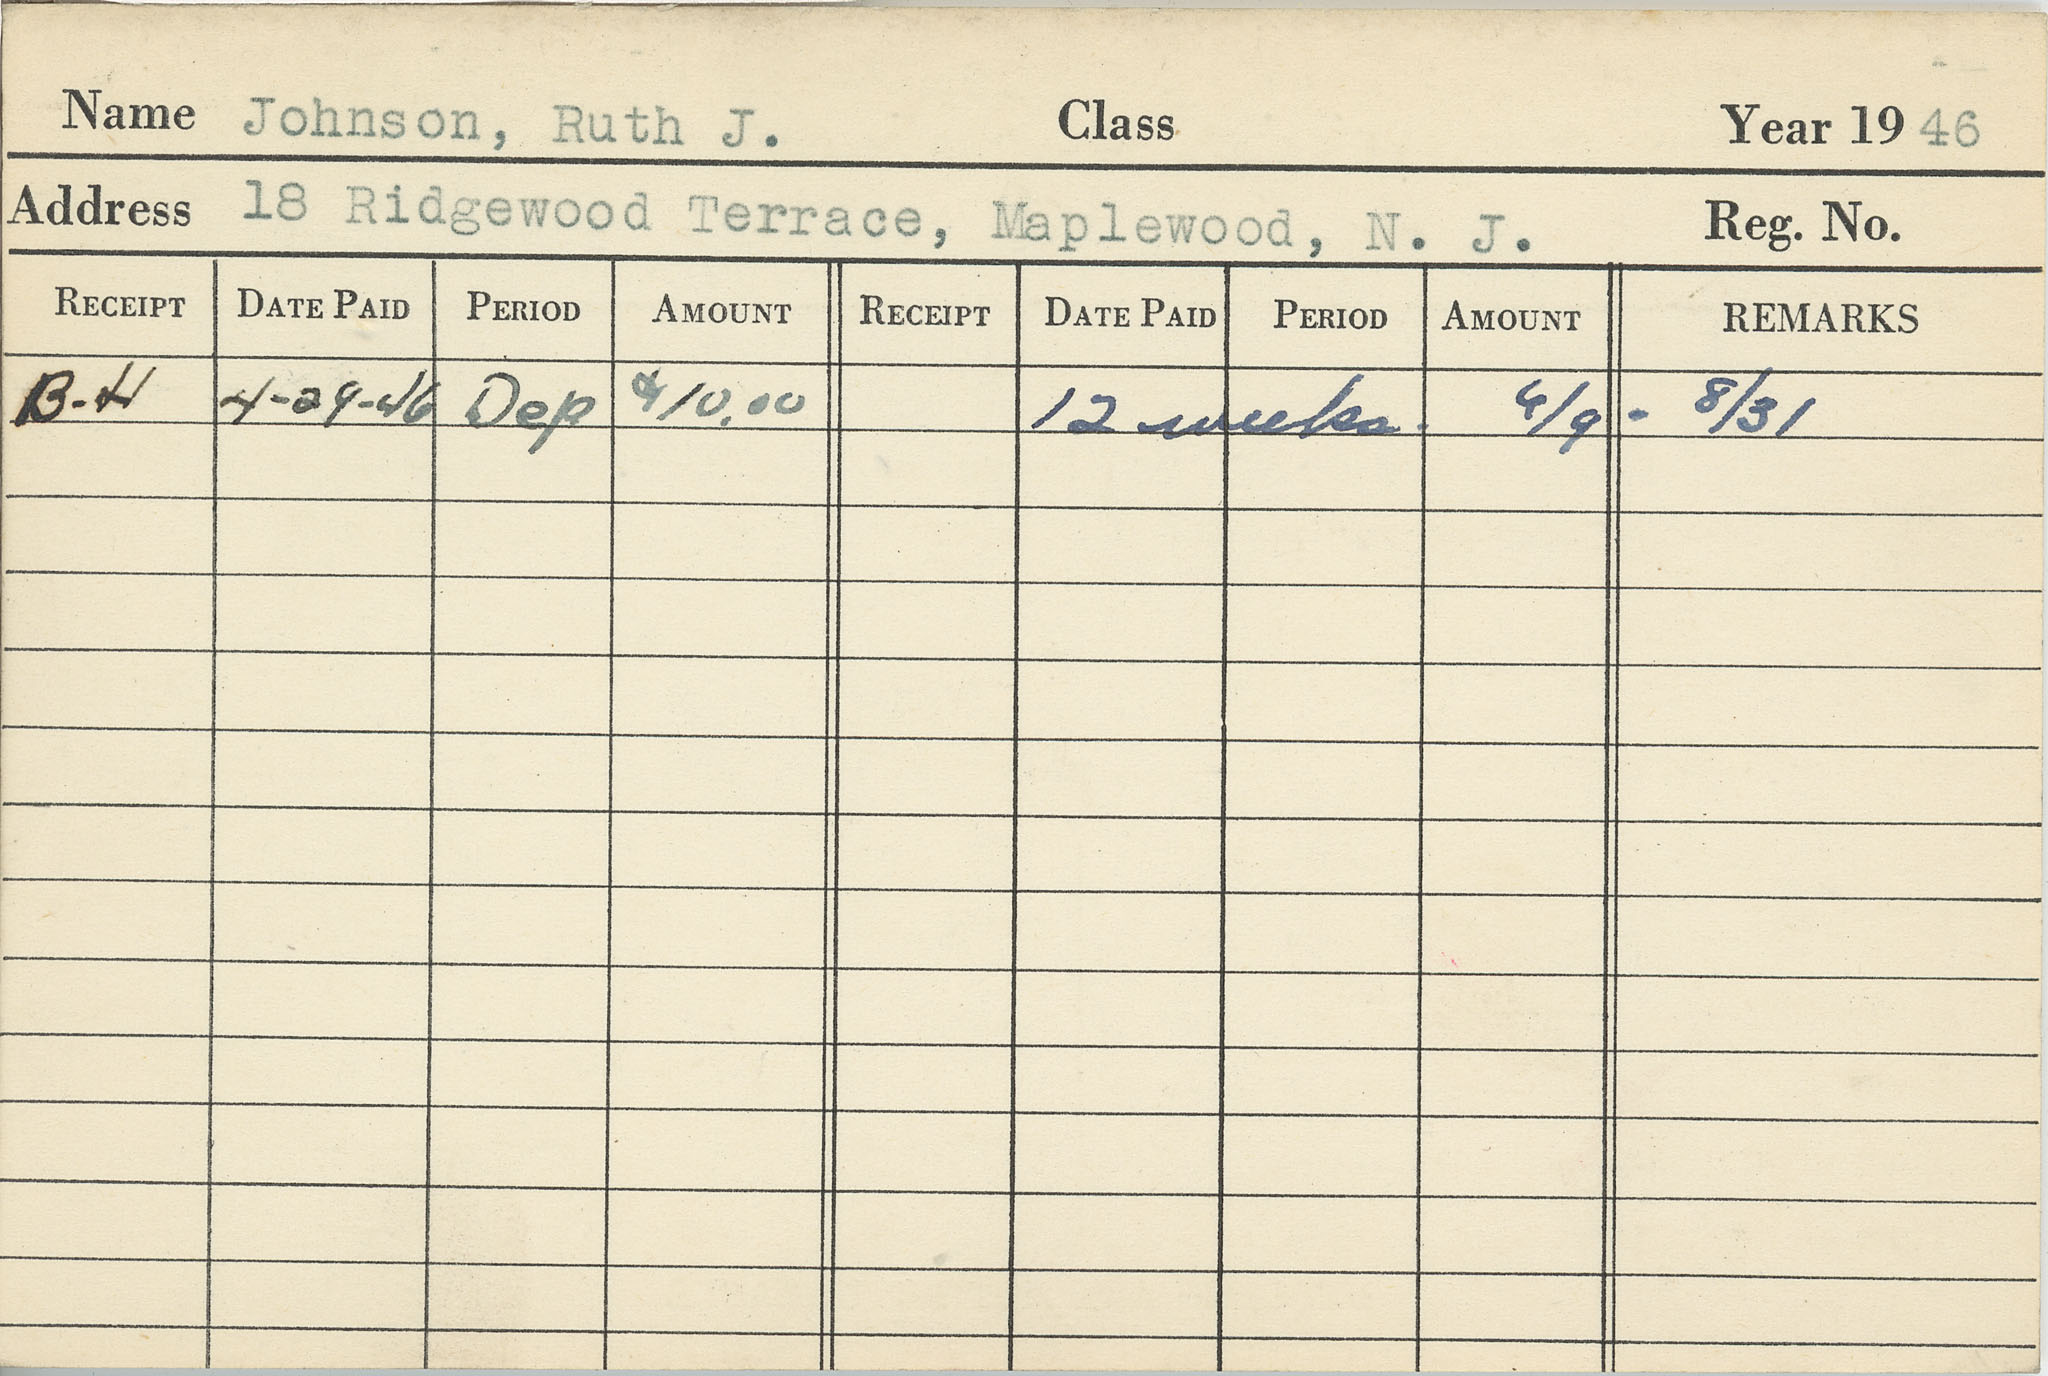 Name Johnson, Ruth J. Class Year 19 46
Address 18 Ridgewood Terrace, Maplewood, N. J. Reg. No.
RECEIPT DATE PAID PERIOD AMOUNT RECEIPT DATE PAID PERIOD AMOUNT REMARKS
B-H 4-29-46 Dep $10.00 12 weeks. 6/9 - 8/31